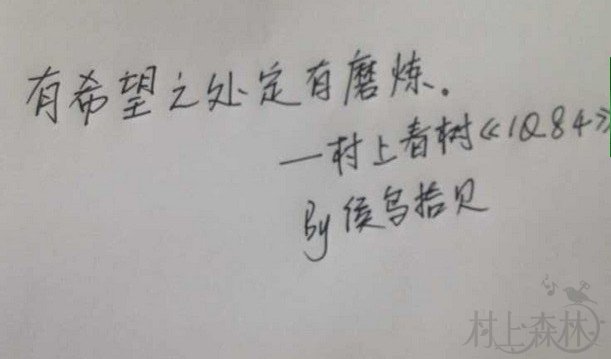 有希望之处定有磨炼.
—村上春树《1Q84》
By 侯鸟拾贝
村上森林